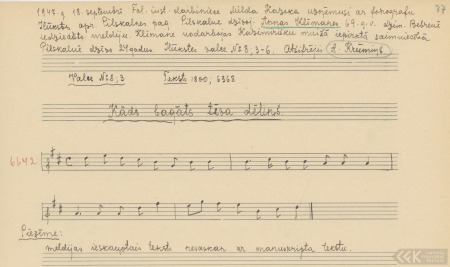 1947. g. 18. septembrī Fol. inst. darbiniece Milda Loszeka uzņēmusi ar fonogrāfu 77
Ilūkstes apr. Pilskalnes pag. Pilskalnē dzīvoj. Annas Klimanes 69 g.v. dzim. Bebrenē
iedziedātu meldiju. Klimane nodarbojas Kazimirišķu muižā iepirktā saimniecībā
Pilskalnē dzīvo 24 gadus. Ilūkstes valce № 8, 3-6. Atšifrējis E. Krūmiņš
Valce № 8,3 Teksts 1800, 6368
Kāds bagāts tēva dēliņš.
6642
Piezīme:
meldijas ieskaņotais teksts nesaskan ar manuskripta tekstu.